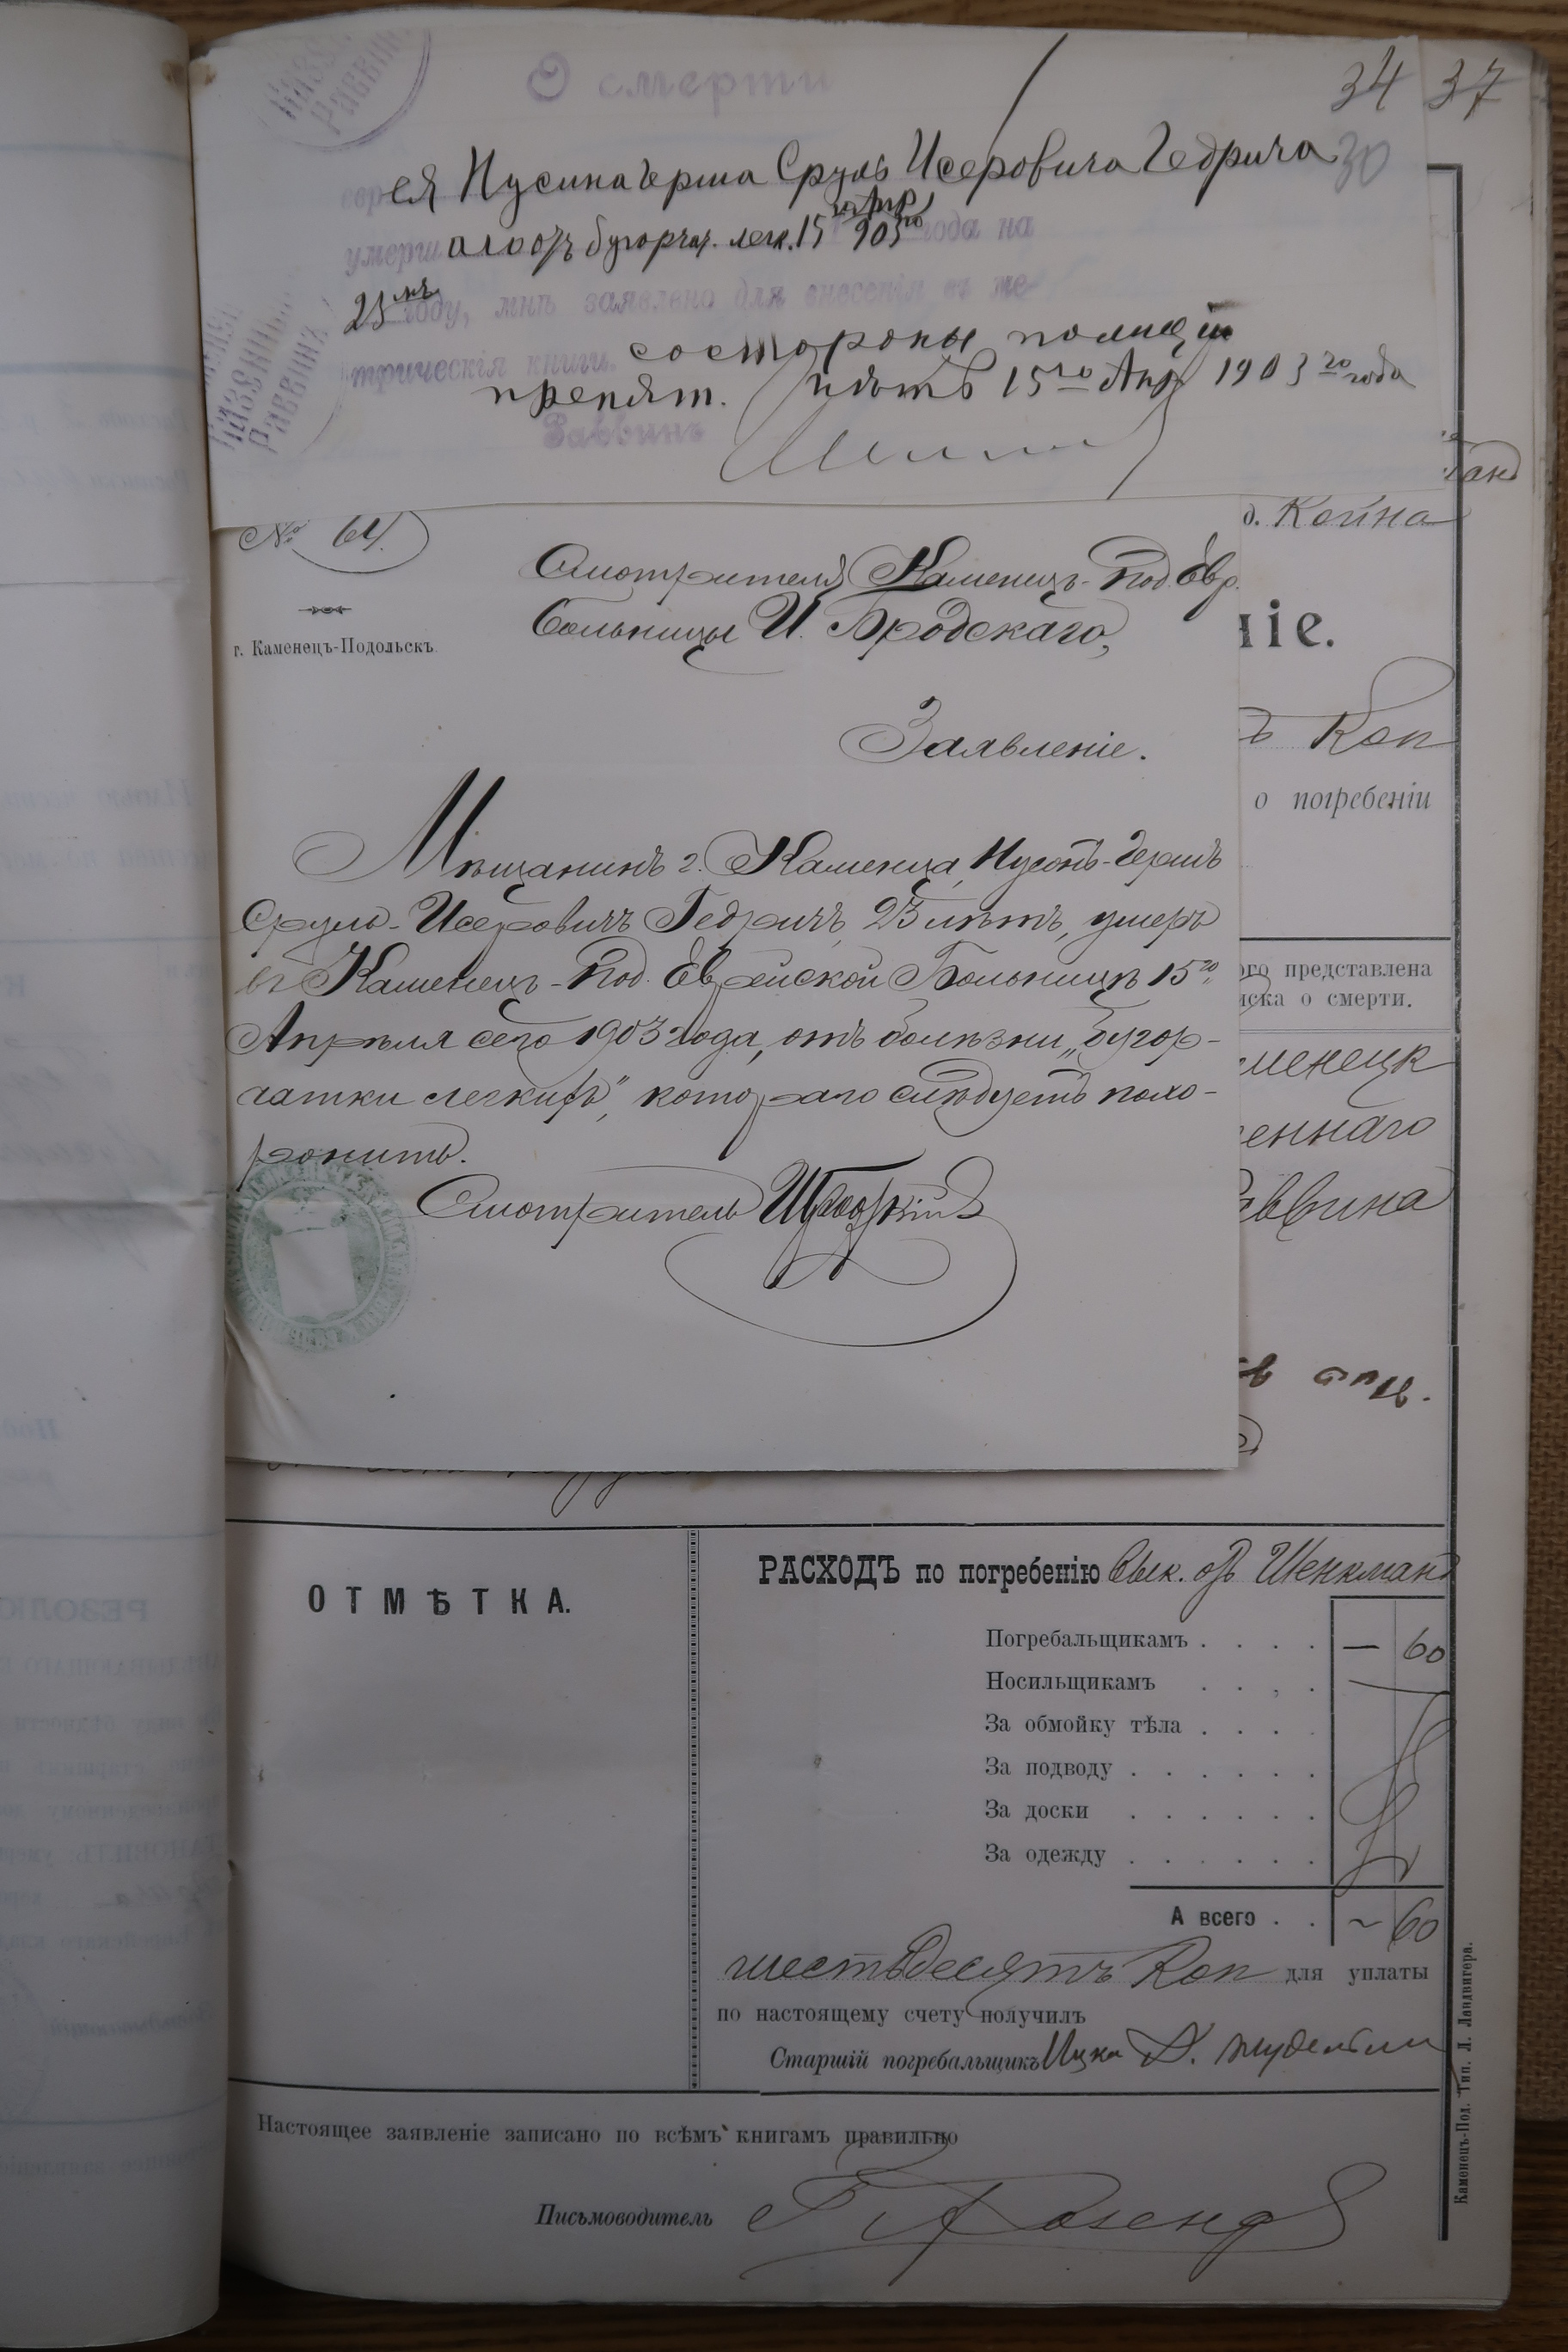 34 37
30
О смерти
Казен
Раввин
еврея Нусина Герша Сруль Исеровича Гедрича
умершаго отъ бугорчат. легк. 15го Апр 903го года на
23мъ году, мнѣ заявлено для внесенія въ ме-
трическія книги. со стороны полиціи
препят. нѣтъ 15го Апр 1903го года
Раввинъ
Казенный
Раввинъ
№ 64.
г. Каменецъ-Подольскъ.
Смотрителя Каменецъ-Под. Евр.
Больницы И. Бродскаго,
Заявленіе.
Мѣщанинъ г. Каменца, Нусонъ-Гершъ
Сруль-Исеровичъ Гедричъ, 23 лѣтъ, умеръ
въ Каменецъ-Под. Еврейской Больницѣ 15го
Апрѣля сего 1903 года, отъ болѣзни „бугор-
чатки легкихъ", котораго слѣдуетъ похо-
ронить.
Смотритель
д. Койна
ніе.
ъ Коп
о погребеніи
ого представлена
иска о смерти.
менецк
еннаго
аввина
ОТМѢТКА.
РАСХОДЪ по погребенію Взыск. отъ Шенкмана
Погребальщикамъ . . . . — 60
Носильщикамъ . . . . —
За обмойку тѣла . . . .
За подводу . . . . . .
За доски . . . . . .
За одежду . . . . . .
А всего . . ~ 60
шестьдесятъ Коп для уплаты
по настоящему счету получилъ
Старшій погребальщикъ Ицко
Настоящее заявленіе записано по всѣмъ книгамъ правильно
Письмоводитель
Каменецъ-Под. Тип. Л. Ландвигера.